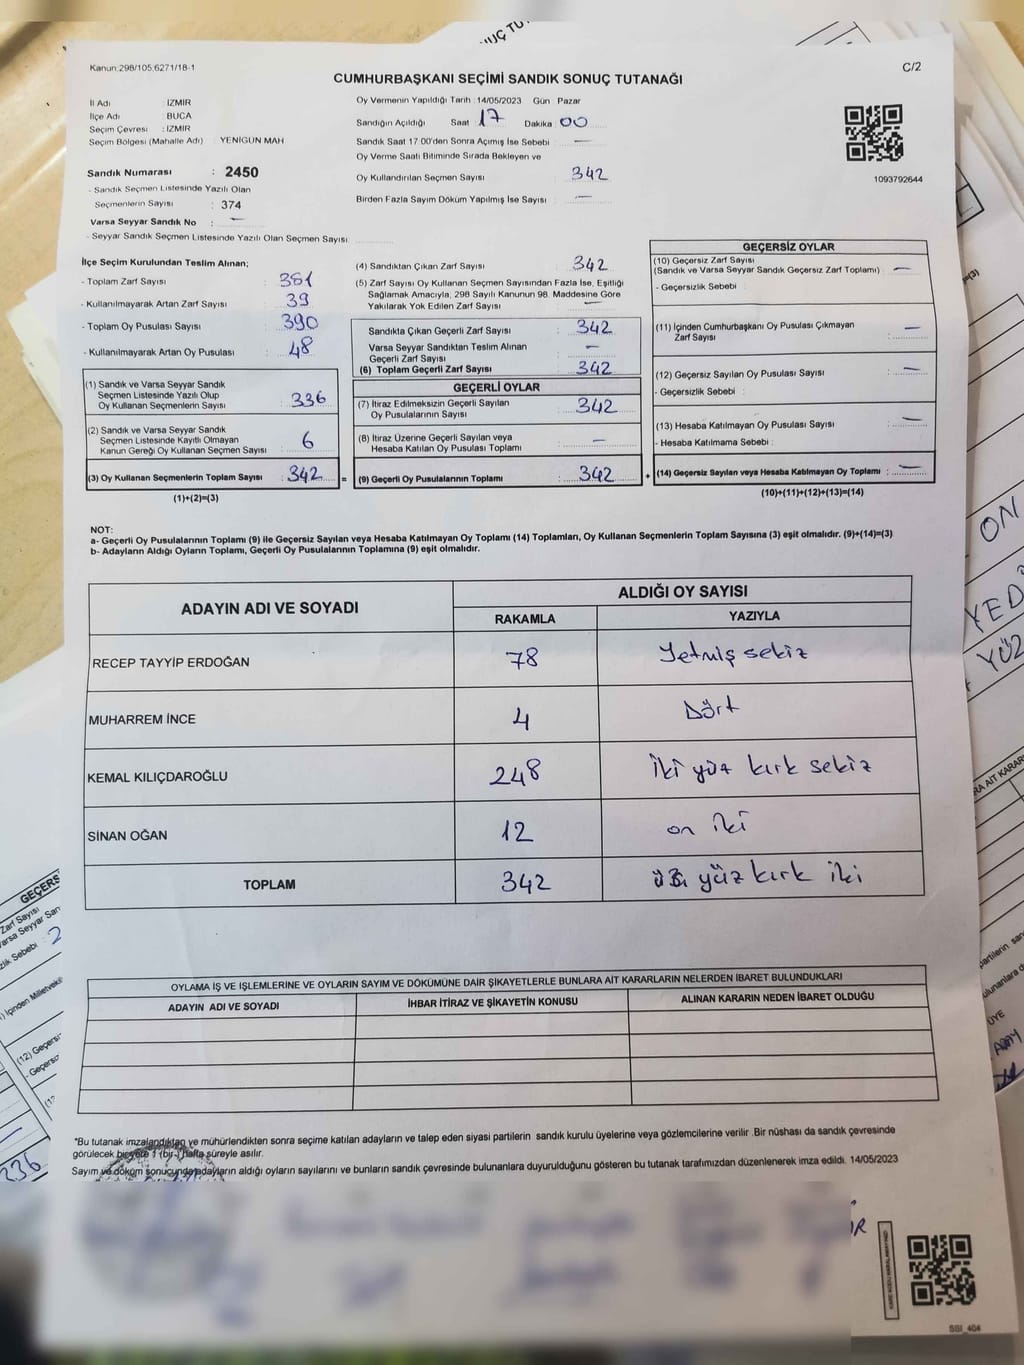 Kanun:298/105,6271/18-1
C/2
CUMHURBAŞKANI SEÇİMİ SANDIK SONUÇ TUTANAĞI
İl Adı : İZMİR
İlçe Adı : BUCA
Seçim Çevresi : İZMİR
Seçim Bölgesi (Mahalle Adı) : YENİGÜN MAH
Sandık Numarası : 2450
- Sandık Seçmen Listesinde Yazılı Olan
Seçmenlerin Sayısı : 374
Varsa Seyyar Sandık No : —
- Seyyar Sandık Seçmen Listesinde Yazılı Olan Seçmen Sayısı:
Oy Vermenin Yapıldığı Tarih :14/05/2023 Gün Pazar
Sandığın Açıldığı Saat 17 Dakika : 00
Sandık Saat 17.00'den Sonra Açımış İse Sebebi : —
Oy Verme Saati Bitiminde Sırada Bekleyen ve
Oy Kullandırılan Seçmen Sayısı : 342
Birden Fazla Sayım Döküm Yapılmış İse Sayısı : —
1093792644
İlçe Seçim Kurulundan Teslim Alınan;
- Toplam Zarf Sayısı : 381
- Kullanılmayarak Artan Zarf Sayısı : 39
- Toplam Oy Pusulası Sayısı : 390
- Kullanılmayarak Artan Oy Pusulası : 48
(1) Sandık ve Varsa Seyyar Sandık
Seçmen Listesinde Yazılı Olup
Oy Kullanan Seçmenlerin Sayısı : 336
(2) Sandık ve Varsa Seyyar Sandık
Seçmen Listesinde Kayıtlı Olmayan
Kanun Gereği Oy Kullanan Seçmen Sayısı : 6
(3) Oy Kullanan Seçmenlerin Toplam Sayısı : 342 =
(1)+(2)=(3)
(4) Sandıktan Çıkan Zarf Sayısı : 342
(5) Zarf Sayısı Oy Kullanan Seçmen Sayısından Fazla İse, Eşitliği
Sağlamak Amacıyla, 298 Sayılı Kanunun 98. Maddesine Göre
Yakılarak Yok Edilen Zarf Sayısı : —
Sandıkta Çıkan Geçerli Zarf Sayısı : 342
Varsa Seyyar Sandıktan Teslim Alınan
Geçerli Zarf Sayısı : —
(6) Toplam Geçerli Zarf Sayısı : 342
GEÇERLİ OYLAR
(7) İtiraz Edilmeksizin Geçerli Sayılan
Oy Pusulalarının Sayısı : 342
(8) İtiraz Üzerine Geçerli Sayılan veya
Hesaba Katılan Oy Pusulası Toplamı : —
(9) Geçerli Oy Pusulalarının Toplamı : 342 +
GEÇERSİZ OYLAR
(10) Geçersiz Zarf Sayısı
(Sandık ve Varsa Seyyar Sandık Geçersiz Zarf Toplamı) : —
- Geçersizlik Sebebi :
(11) İçinden Cumhurbaşkanı Oy Pusulası Çıkmayan
Zarf Sayısı : —
(12) Geçersiz Sayılan Oy Pusulası Sayısı : —
- Geçersizlik Sebebi :
(13) Hesaba Katılmayan Oy Pusulası Sayısı : —
- Hesaba Katılmama Sebebi :
(14) Geçersiz Sayılan veya Hesaba Katılmayan Oy Toplamı : —
(10)+(11)+(12)+(13)=(14)
NOT:
a- Geçerli Oy Pusulalarının Toplamı (9) ile Geçersiz Sayılan veya Hesaba Katılmayan Oy Toplamı (14) Toplamları, Oy Kullanan Seçmenlerin Toplam Sayısına (3) eşit olmalıdır. (9)+(14)=(3)
b- Adayların Aldığı Oyların Toplamı, Geçerli Oy Pusulalarının Toplamına (9) eşit olmalıdır.
ADAYIN ADI VE SOYADI
ALDIĞI OY SAYISI
RAKAMLA YAZIYLA
RECEP TAYYİP ERDOĞAN 78 Yetmiş sekiz
MUHARREM İNCE 4 Dört
KEMAL KILIÇDAROĞLU 248 İki yüz kırk sekiz
SİNAN OĞAN 12 on iki
TOPLAM 342 üç yüz kırk iki
OYLAMA İŞ VE İŞLEMLERİNE VE OYLARIN SAYIM VE DÖKÜMÜNE DAİR ŞİKAYETLERLE BUNLARA AİT KARARLARIN NELERDEN İBARET BULUNDUKLARI
ADAYIN ADI VE SOYADI İHBAR İTİRAZ VE ŞİKAYETİN KONUSU ALINAN KARARIN NEDEN İBARET OLDUĞU
*Bu tutanak imzalandıktan ve mühürlendikten sonra seçime katılan adayların ve talep eden siyasi partilerin sandık kurulu üyelerine veya gözlemcilerine verilir .Bir nüshası da sandık çevresinde
görülecek bir yere 1 (bir ) hafta süreyle asılır.
Sayım ve döküm sonucunda adayların aldığı oyların sayılarını ve bunların sandık çevresinde bulunanlara duyurulduğunu gösteren bu tutanak tarafımızdan düzenlenerek imza edildi. 14/05/2023
KARE KODU KARALAMAYINIZ!
SSI_404
ON
YÜZ
336